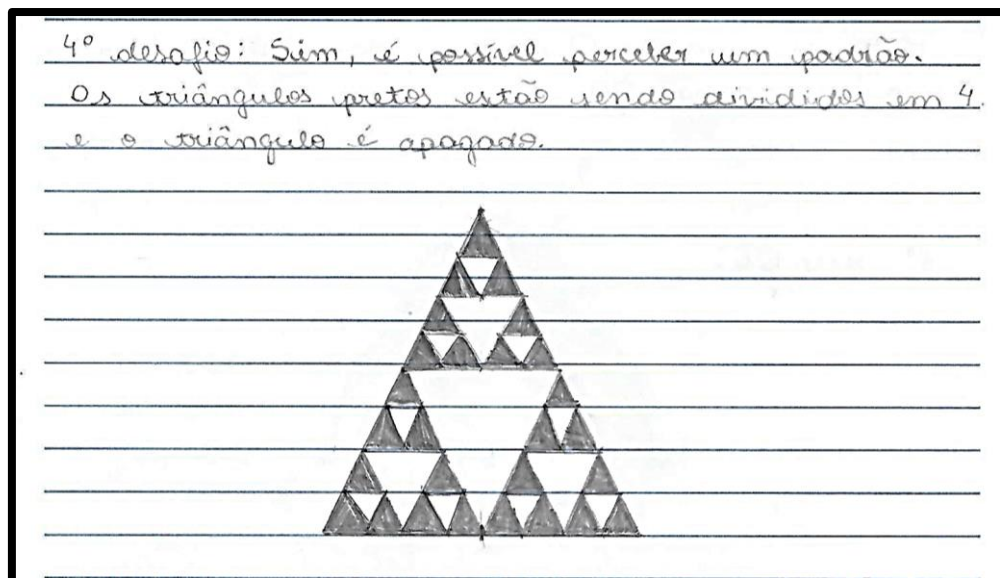 4º desafio: Sim, é possível perceber um padrão.
Os triângulos pretos estão sendo divididos em 4.
e o triângulo é apagado.